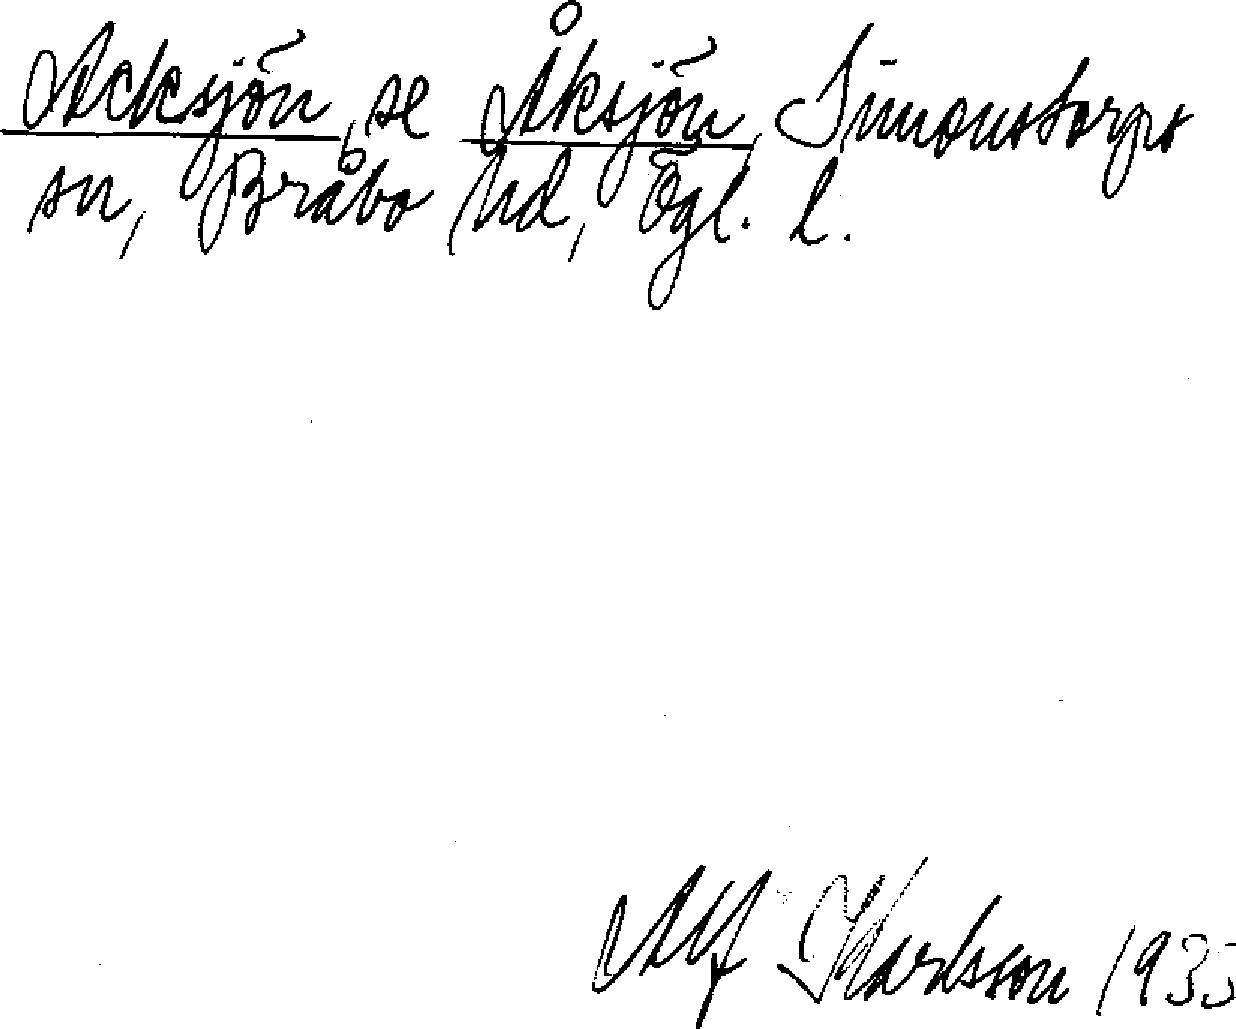 Acksjön, se Åksjön, Simonstorps
sn, Bråbo hd, Ögl. l.
Alf Karlsson 1935